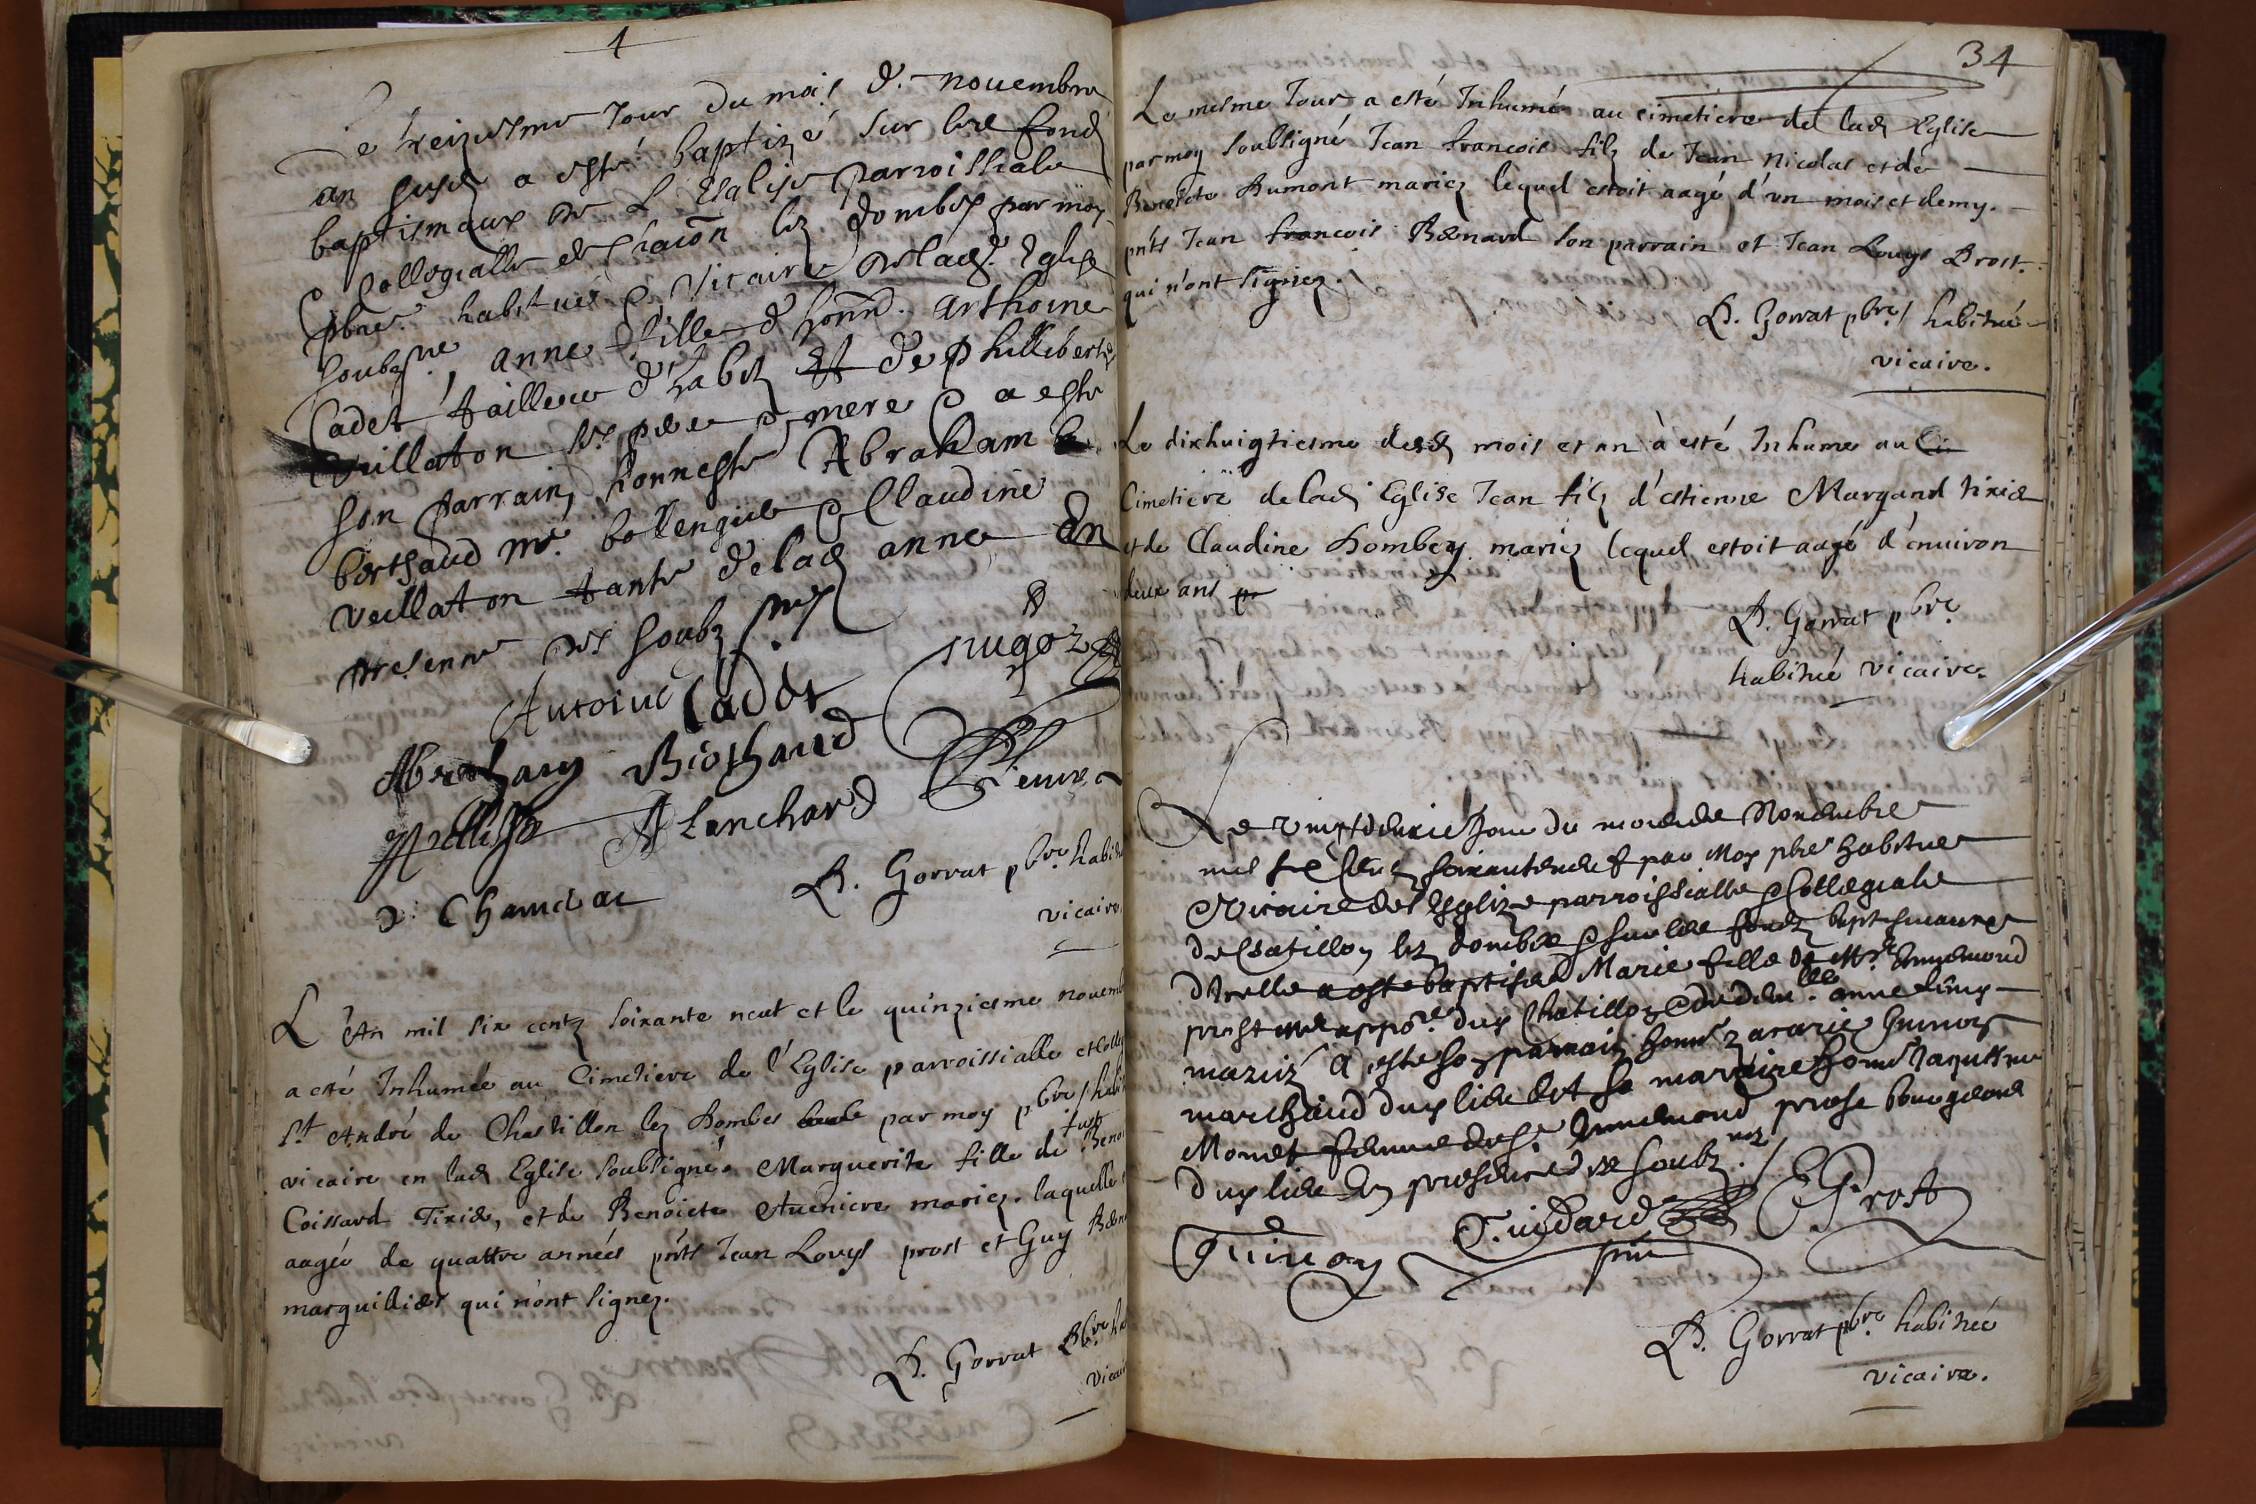 Le treiziesme Jour du mois de novembre
an susd a esté baptizé sur les fondz
baptismaux de L Esglise parroissiale
Collegialle de Chaōn lez dombes par moy
pbre habitué & vicaire de lad. Eglise
soubzne, anne fille d'honn. anthoine
Cadet tailleur d'habitz Et de phillibert
Veillaton ses pere & mere & a esté
son parrain honneste Abraham
berthaud mr. bollengier & Claudine
Veillaton tante de lad anne En
presence des soubz snez
Antoine Cadet
Abraham Berthaud
Blanchard
D. Gorrat pbre habi
vicaire
L'An mil six centz soixante neuf et le quinziesme novemb
a esté Inhumée au Cimetiere de l'Eglise parroissialle et Colle
St André de Chastillon lez Dombes par moy pbre habi
vicaire en lad Eglise soubsigné Marguerite fille de Beno
Coissard Tixier, et de Benoicte Aveniere mariez. laquelle
aagée de quattre années pnts Jean Louys prost et Guy Bern
marguilliers qui n'ont signez.
D. Gorrat Pbre ha
vicai
34
Le mesme Jour a esté Inhumé au cimetiere de lad Eglise
par moy soubsigné Jean francois filz de Jean Nicolas et de
Benoicte Dumont mariez lequel estoit aagé d'un mois et demy.
pnts Jean francois Bernard son parrain et Jean Louys Prost.
qui n'ont signez.
D. Gorrat pbre habitué
vicaire.
Le dixhuigtiesme desd mois et an à esté Inhume au Ci
Cimetiere de lad Eglise Jean filz d'estienne Margand tixier
et de Claudine Dombey mariez lequel estoit aagé d'environ
deux ans
D. Gorrat pbre
habitué vicaire.
Le vingtdeuxie Jour du mois de Novembre
mil six Centz soixanteneuf par Moy pbre habitué
Vicaire de l'Esglize parroissialle & Collegiale
de Chatillon lez dombes & sur les fondz baptismaux
d'Icelle a esté baptisée Marie fille de Mr. Ennemond
prost me appore. dud Chatillon & de delle. anne
mariéz a esté son parrain honn zacarie Guinoy
marchand dud lieu et sa marraine honn Jaquême
Monet femme dud sr. Ennemond prost bourgeois
dud lieu En presence des soubz.nez
Guinoy Guidard EProst
D. Gorrat pbre habitué
vicaire.